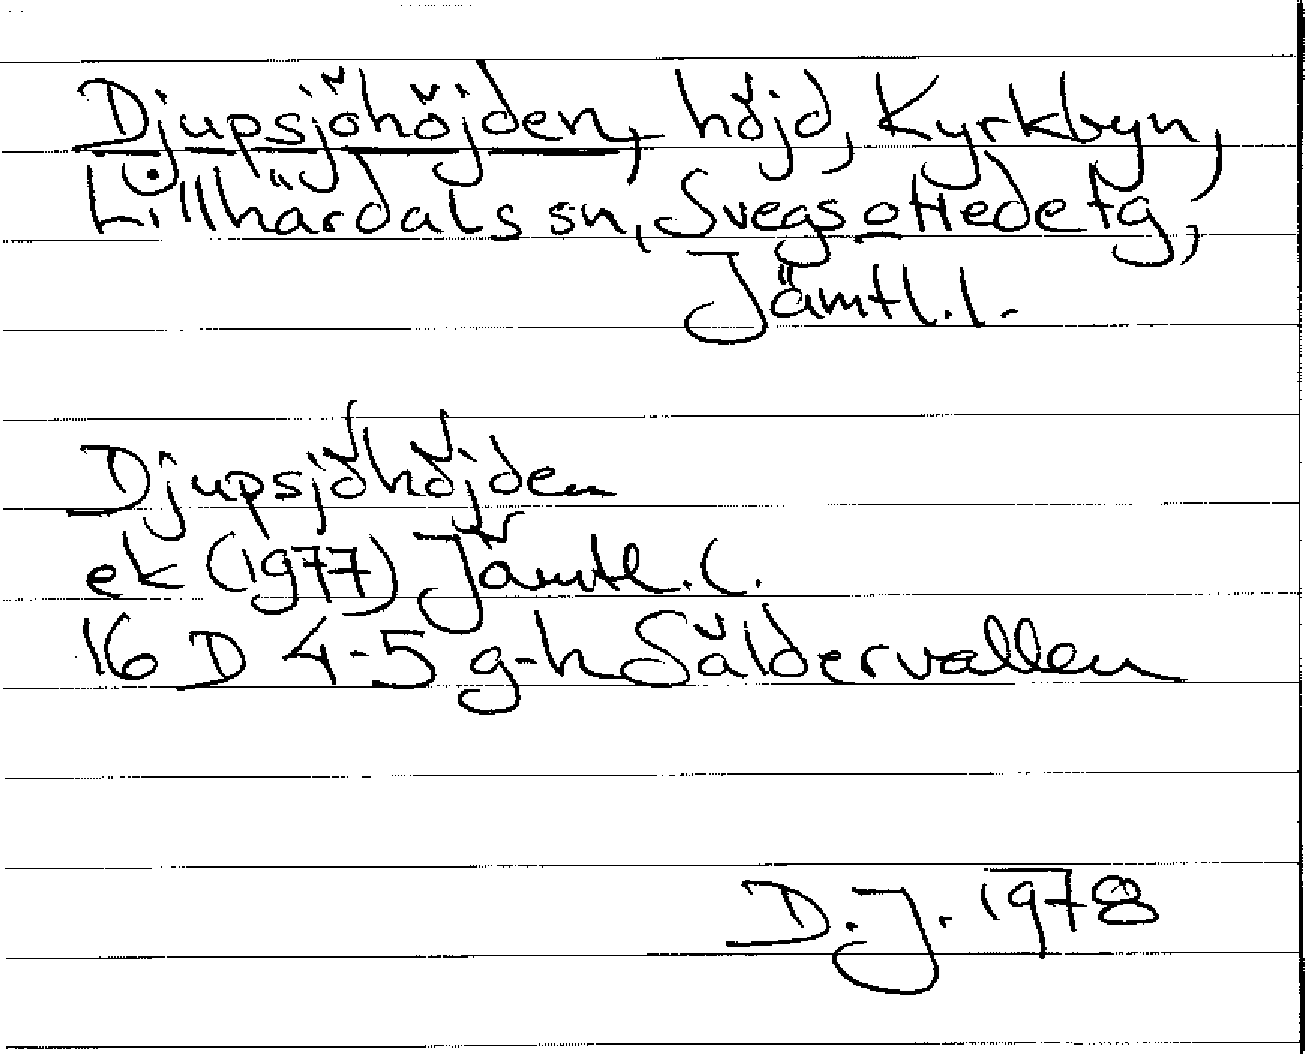 Djupsjöhöjden, höjd, Kyrkbyn,
Lillhärdals sn, Svegs o Hede tg,
Jämtl. l.
Djupsjöhöjden
ek (1977) Jämtl. l.
16 D 4-5 g-h Såldervallen
D.J. 1978